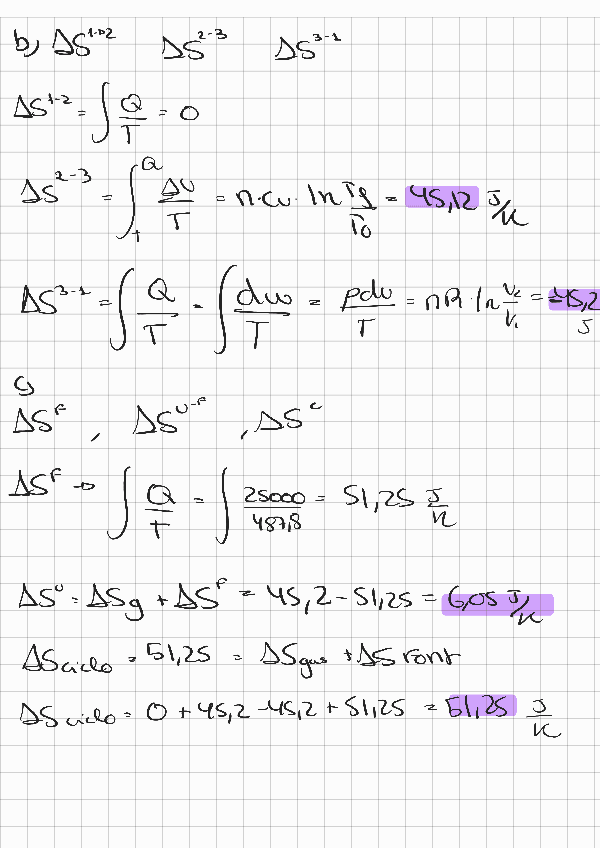 b) ΔS¹⁻ᴰ² ΔS²⁻³ ΔS³⁻¹
ΔS¹⁻² = ∫ Q/T = 0
ΔS²⁻³ = ∫ ΔU/T = n·cv·ln Tf/To = 45,12 J/K
ΔS³⁻¹ = ∫ Q/T = ∫ dw/T = pdv/T = nR·ln V₂/V₁ = -45,2 J
c)
ΔSᶠ , ΔSᵁ⁻ᶠ , ΔSᶜ
ΔSᶠ → ∫ Q/T = ∫ 25000/487,8 = 51,25 J/K
ΔSᵁ = ΔSg + ΔSᶠ = 45,2 - 51,25 = 6,05 J/K
ΔSciclo = 51,25 = ΔSgas + ΔSfont
ΔSciclo = 0 + 45,2 - 45,2 + 51,25 = 51,25 J/K